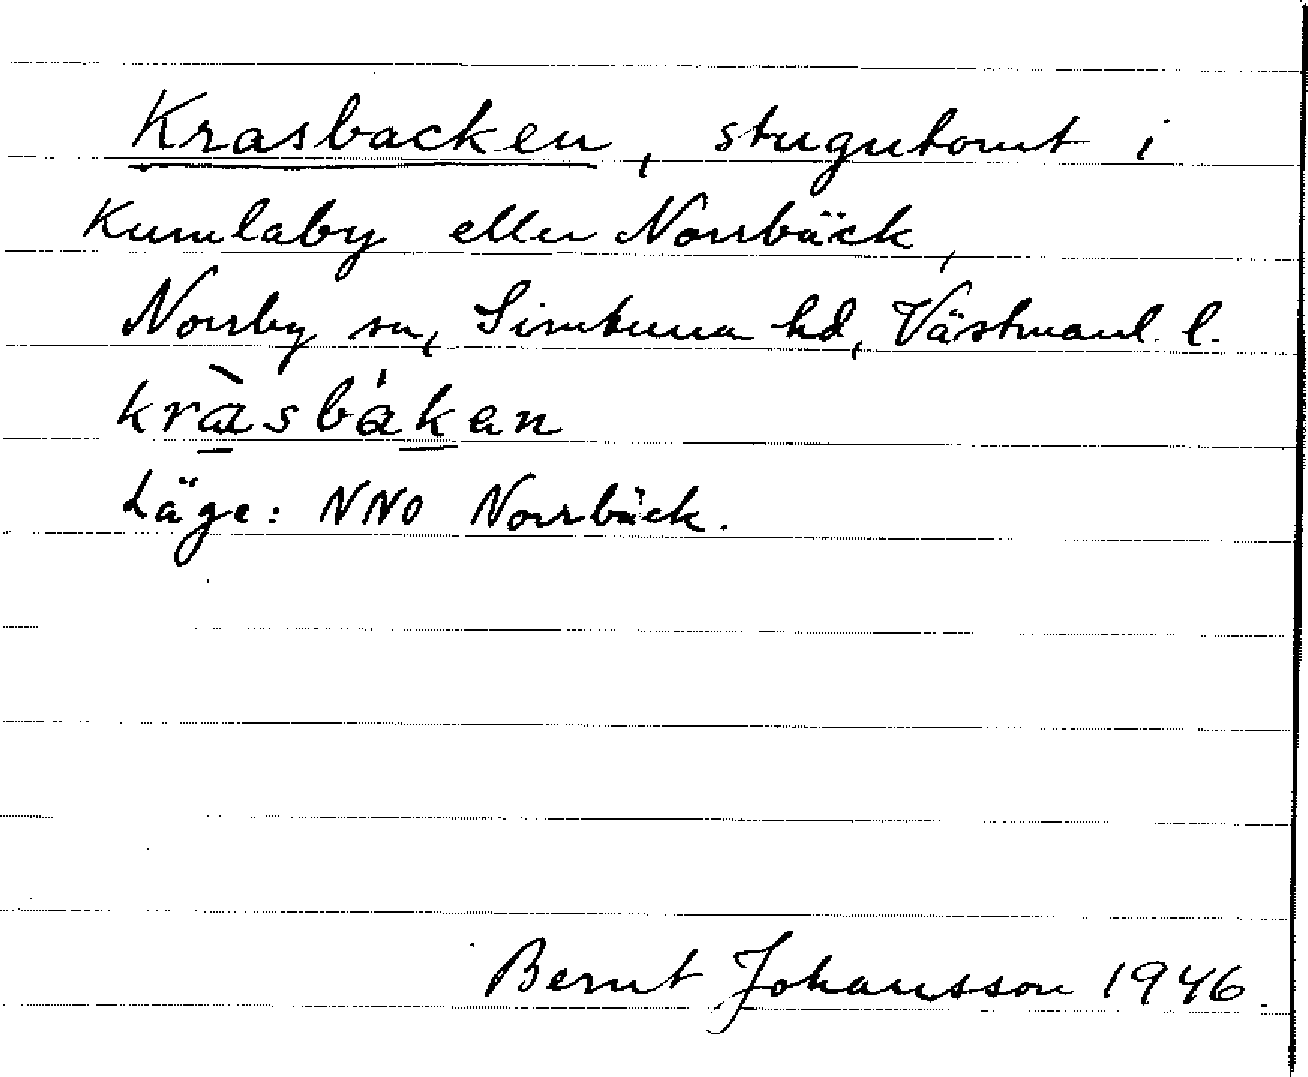 Krasbacken, stugutomt i
Kumlaby eller Norrbäck,
Norrby sn, Simtuna hd, Västmanl. l.
kràsbákan
Läge: NNO Norrbäck.
Bernt Johansson 1946.